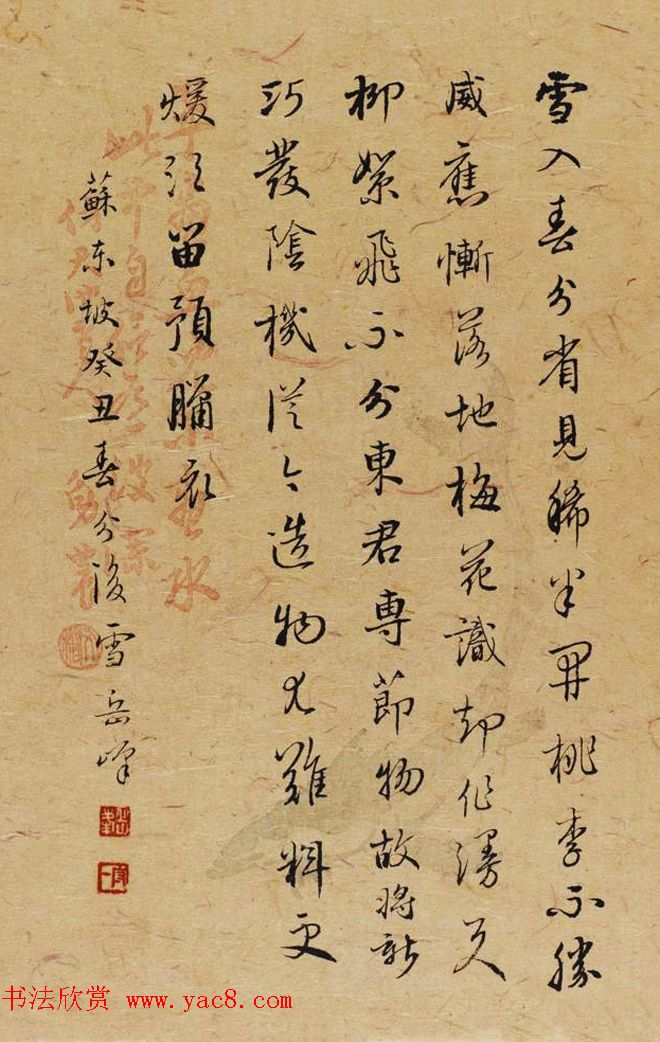 雪入春分省見稀半開桃李不勝
威應慚落地梅花識却作漫天
柳絮飛不分東君專節物故將新
巧發陰機從今造物尤難料更
煖須留預臘衣
蘇東坡癸丑春分後雪岳峰
书法欣赏 www.yac8.com